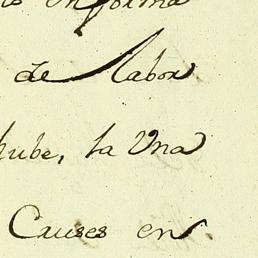 informa
de labor
la Una
Causes en